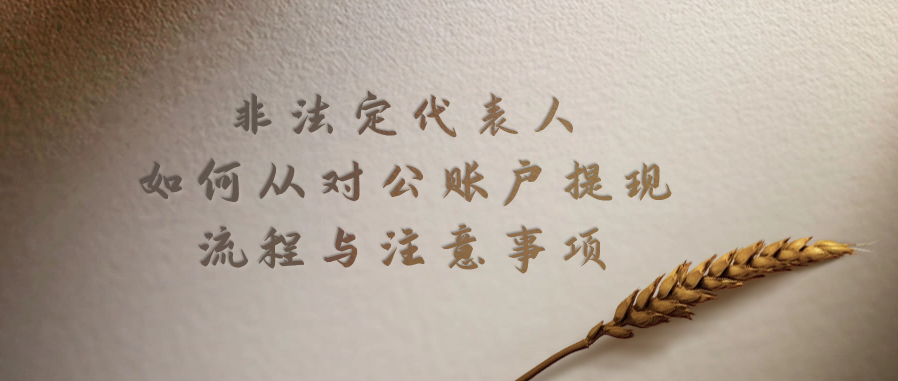 非法定代表人
如何从对公账户提现
流程与注意事项